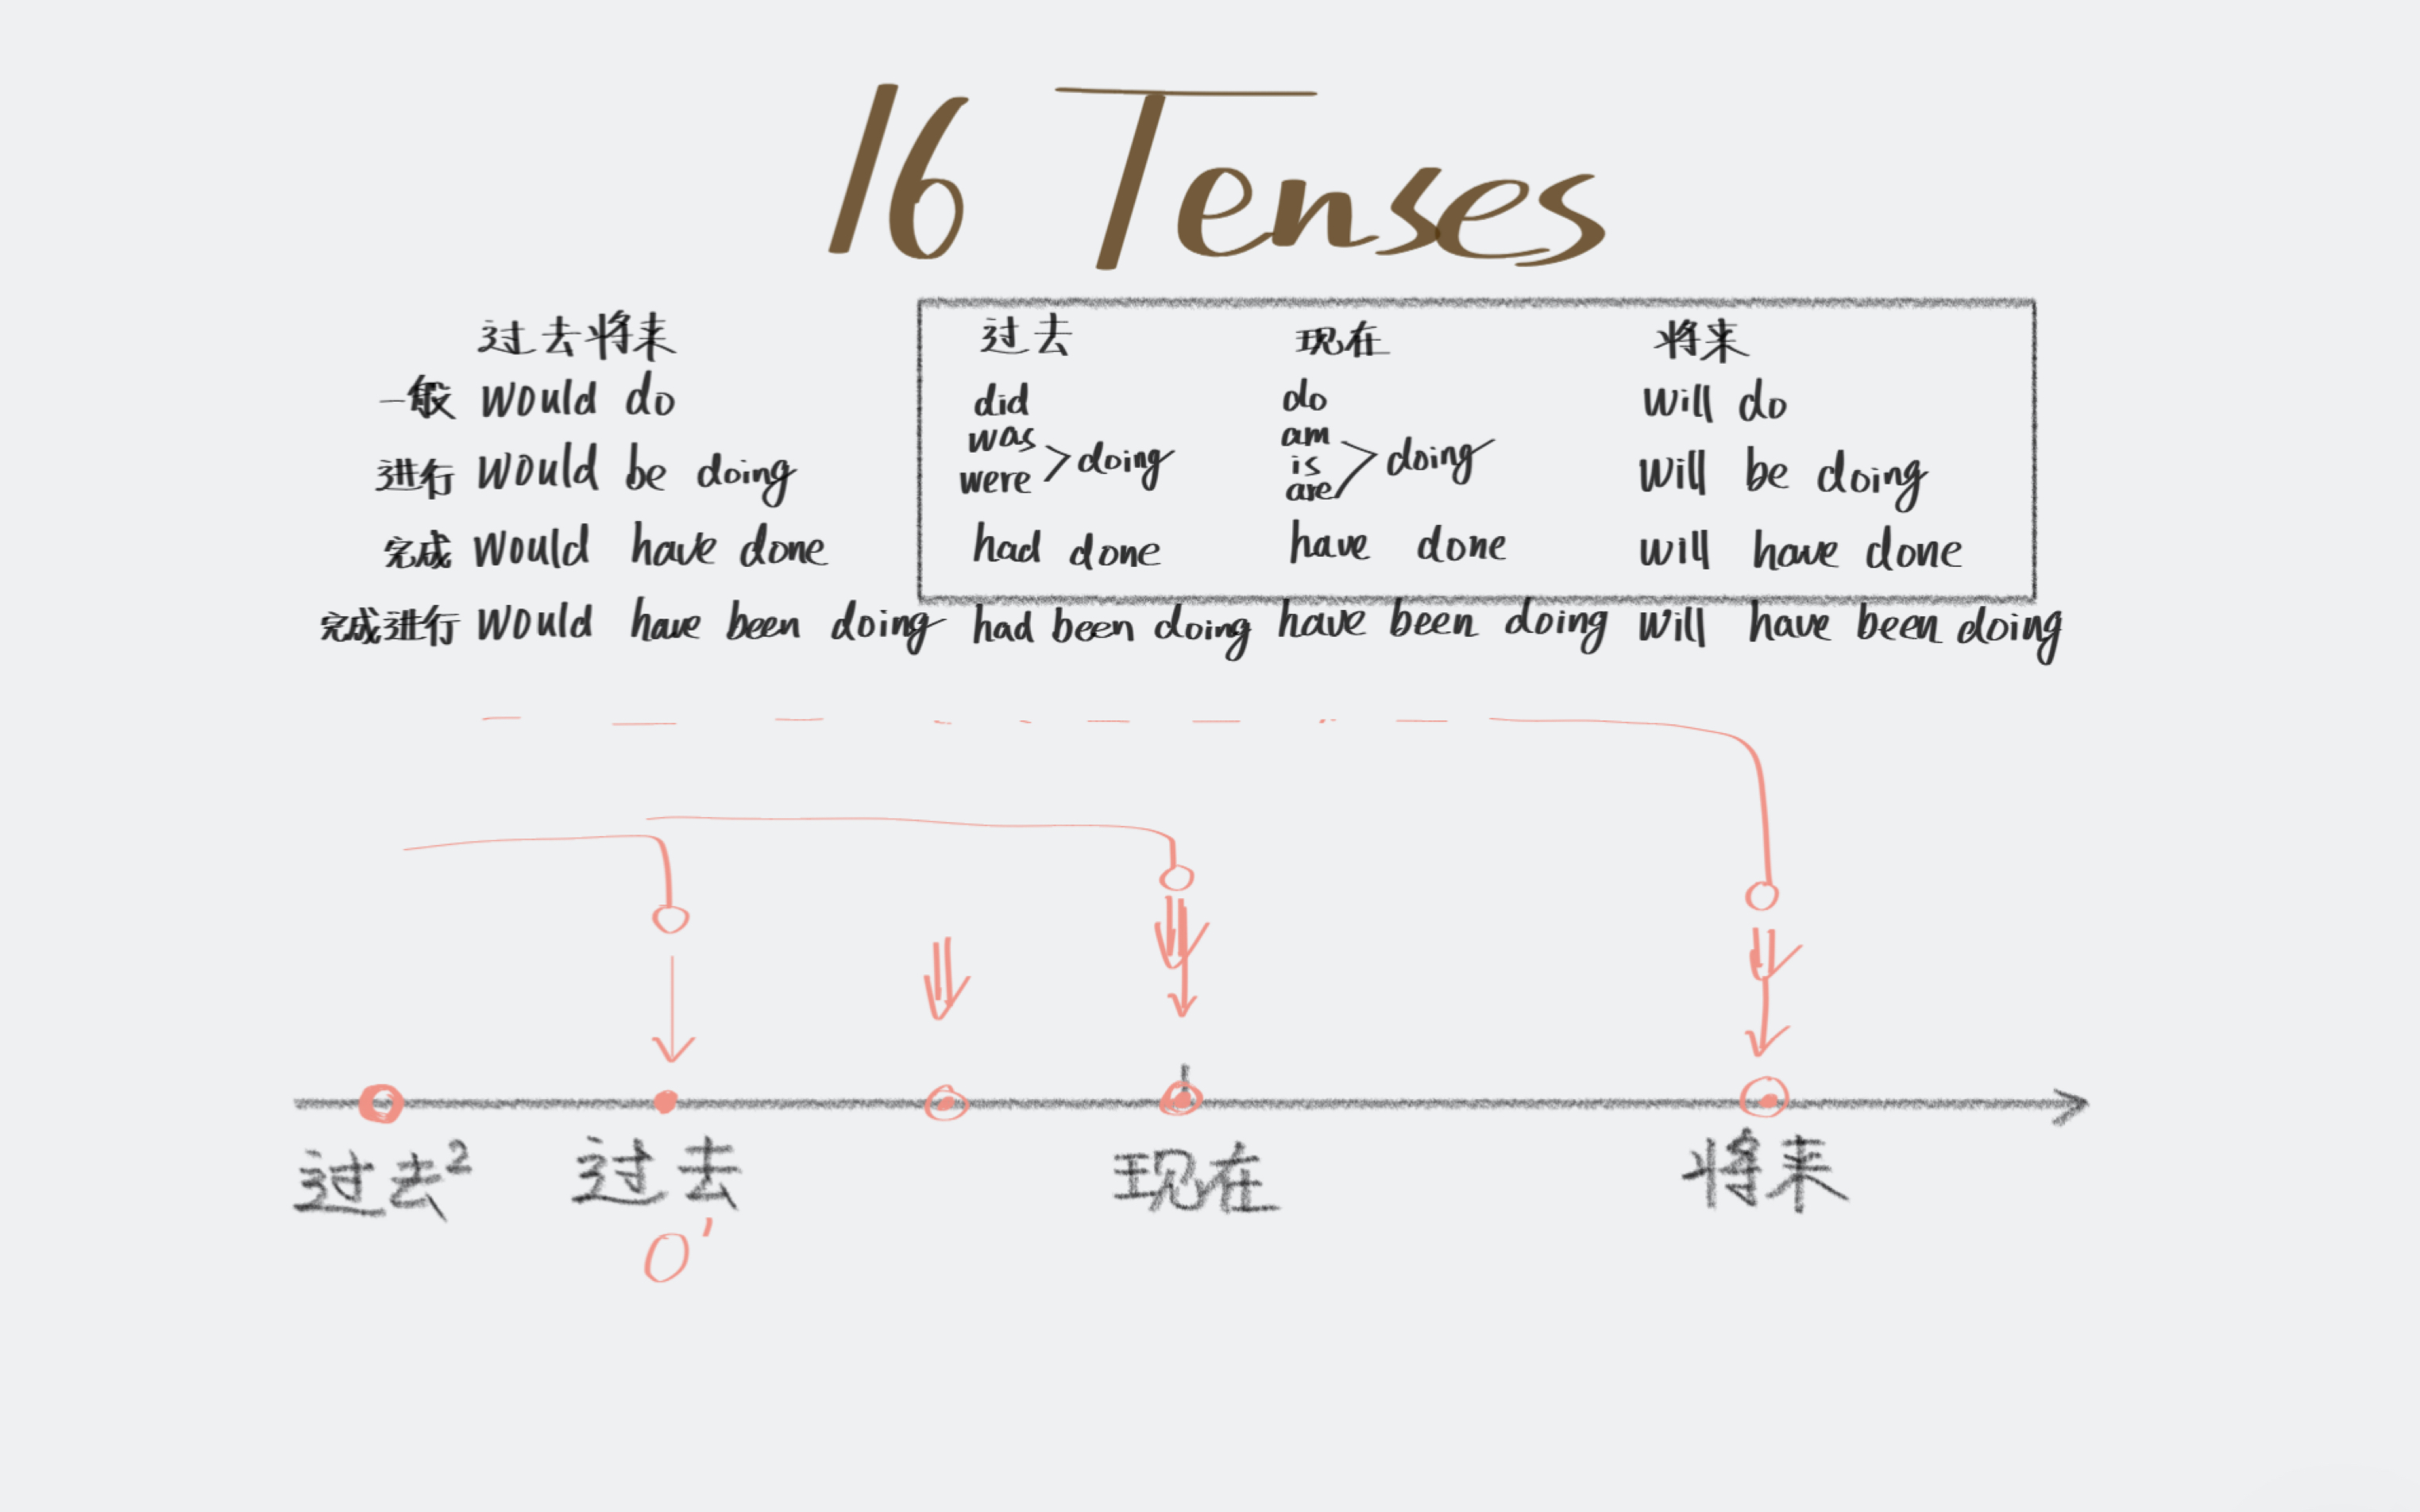 16 Tenses
过去将来 过去 现在 将来
一般 would do did do will do
进行 would be doing was were > doing am is are > doing will be doing
完成 would have done had done have done will have done
完成进行 would have been doing had been doing have been doing will have been doing
过去² 过去 现在 将来
O'